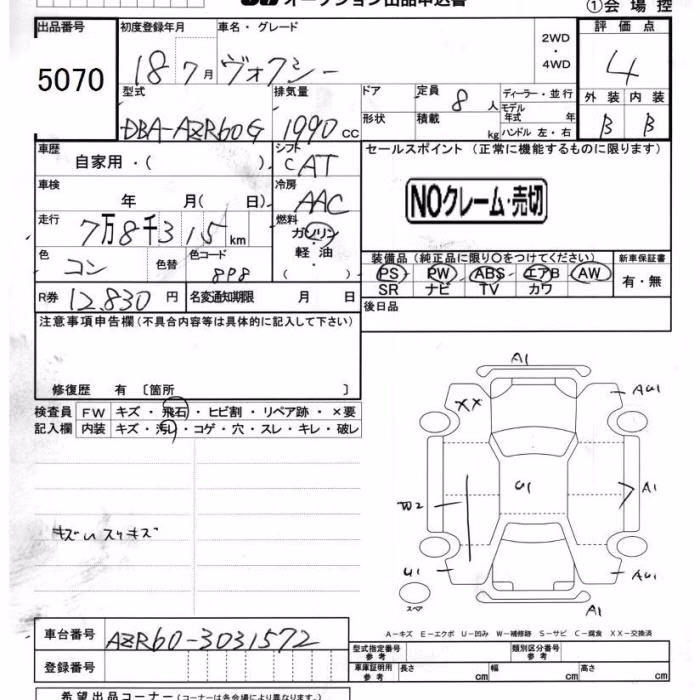 オークション出品申込書
①会場控
出品番号 初度登録年月 車名・グレード 評価点
5070 18 7月 ヴォクシー 2WD・4WD 4
型式 排気量 ドア 定員 8人 ディーラー・並行 外装 内装
DBA-AZR60G 1990cc 形状 積載 kg モデル年式 年 B B
ハンドル 左・右
車歴 自家用・( ) シフト CAT セールスポイント (正常に機能するものに限ります)
車検 年 月( 日) 冷房 AAC NOクレーム・売切
走行 7万8千315km 燃料 ガソリン・軽油・( )
色 コン 色替 色コード 8P8
装備品(純正品に限り○をつけてください) 新車保証書
PS PW ABS エアB AW 有・無
SR ナビ TV カワ
R券 12,830円 名変通知期限 月 日 後日品
注意事項申告欄(不具合内容等は具体的に記入して下さい)
修復歴 有 〔箇所 〕
検査員 FW キズ・飛石・ヒビ割・リペア跡・×要
記入欄 内装 キズ・汚レ・コゲ・穴・スレ・キレ・破レ
キズ スリキズ
A1
XX AU1
U1 A1
W2
U1 AU1
スペア A1
A-キズ E-エクボ U-凹み W-補修跡 S-サビ C-腐食 XX-交換済
車台番号 AZR60-3031572
型式指定番号 参考 類別区分番号 参考
登録番号 車庫証明用 参考 長さ cm 幅 cm 高さ cm
希望出品コーナー(コーナーは各会場により異なります)